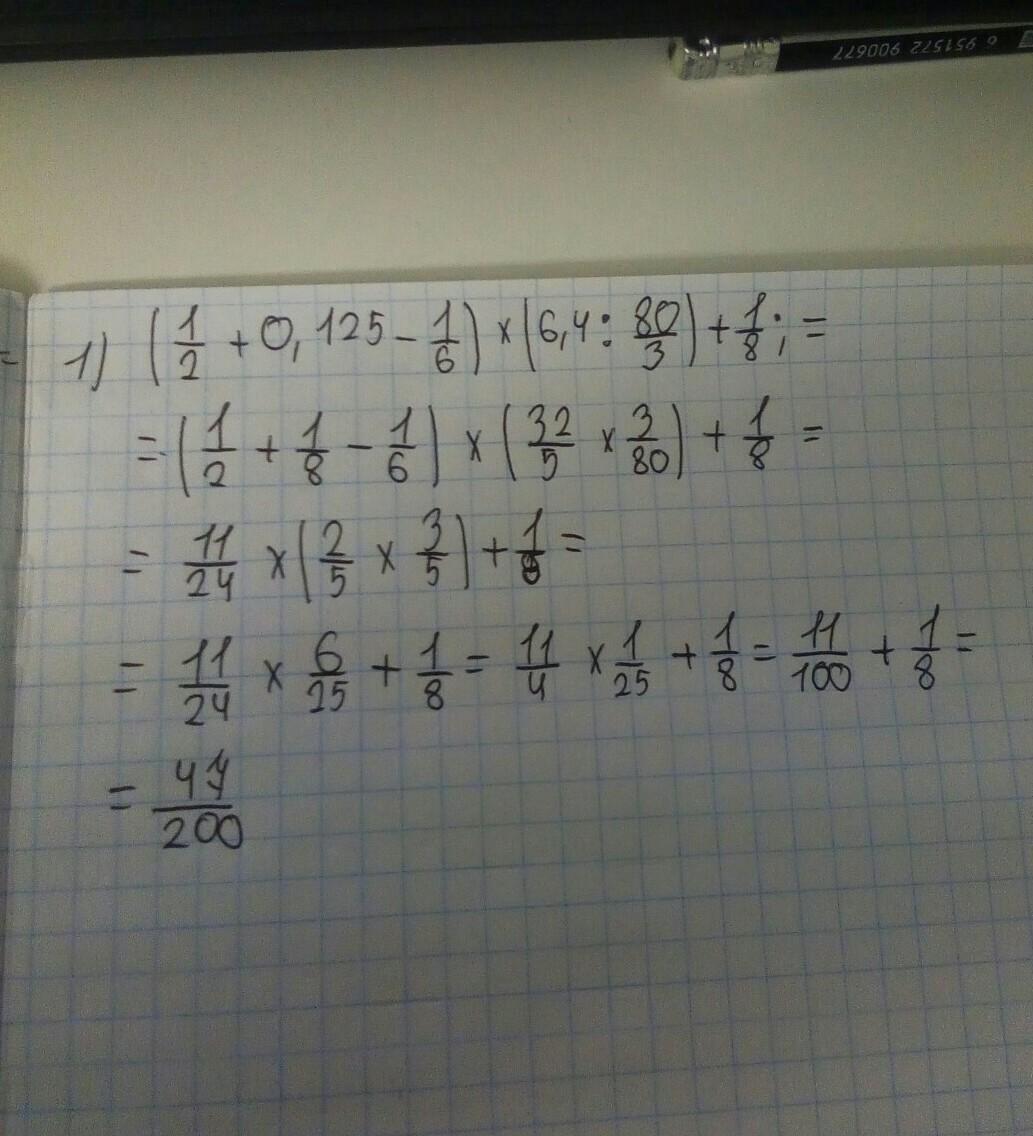 6 951572 900677
1) (1/2 + 0,125 - 1/6) × (6,4 : 80/3) + 1/8 ; =
= (1/2 + 1/8 - 1/6) × (32/5 × 3/80) + 1/8 =
= 11/24 × (2/5 × 3/5) + 1/8 =
= 11/24 × 6/25 + 1/8 = 11/4 × 1/25 + 1/8 = 11/100 + 1/8 =
= 47/200